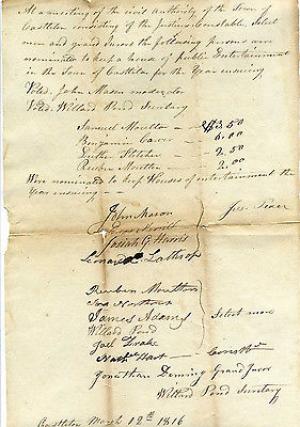 At a meeting of the civil authority of the Town of
Castleton consisting of the Justices Constable, Select
men and grand Jurors the following persons were
nominated to keep a house of public Entertainment
in the Town of Castleton for the Year ensuing
Voted, John Mason moderator
Voted Willard Pond Secretary
Samuel Moulton - $3.50
Benjamin Carver - 6.00
Luther Fletcher - 2.50
Reuben Moulton - 2.00
Were nominated to keep Houses of entertainment the
Year ensuing
John Mason
Jus. Peace
Josiah G Harris
Leonard Lathrop
Reuben Moulton
James Adams
Select men
Willard Pond
Joel Drake
Hart - Const
Jonathan Deming Grand Juror
Willard Pond Secretary
Castleton March 12th 1816